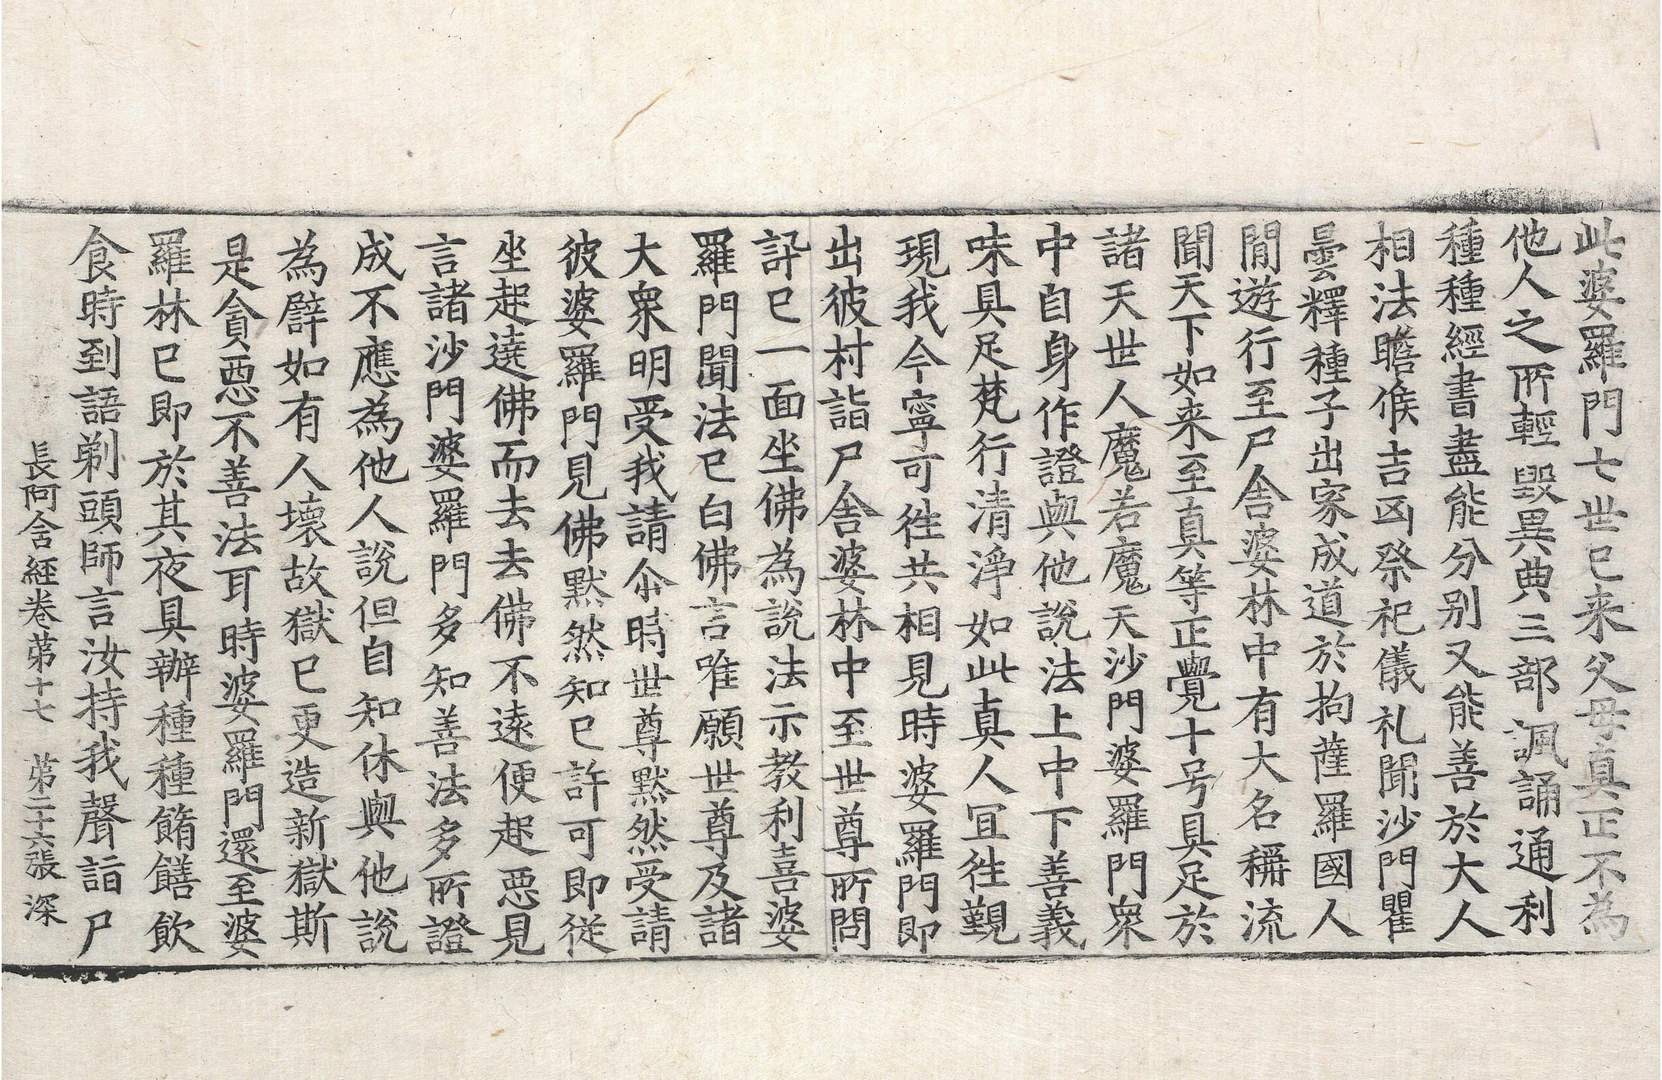 此婆羅門七世已来父母真正不為
他人之所輕毀異典三部諷誦通利
種種經書盡能分別又能善於大人
相法瞻候吉凶祭祀儀礼聞沙門瞿
曇釋種子出家成道於拘薩羅國人
閒遊行至尸舍婆林中有大名稱流
聞天下如来至真等正覺十号具足於
諸天世人魔若魔天沙門婆羅門衆
中自身作證與他說法上中下善義
味具足梵行清淨如此真人冝徃覲
現我今寧可徃共相見時婆羅門即
出彼村詣尸舍婆林中至世尊所問
訊已一面坐佛為說法示教利喜婆
羅門聞法已白佛言唯願世尊及諸
大衆明受我請尒時世尊默然受請
彼婆羅門見佛默然知已許可即従
坐起遶佛而去去佛不遠便起惡見
言諸沙門婆羅門多知善法多所證
成不應為他人說但自知休與他說
為譬如有人壞故獄已更造新獄斯
是貪惡不善法耳時婆羅門還至婆
羅林已即於其夜具辦種種餚饍飲
食時到語剃頭師言汝持我聲詣尸
長阿含經卷苐十七 苐二十六張 深